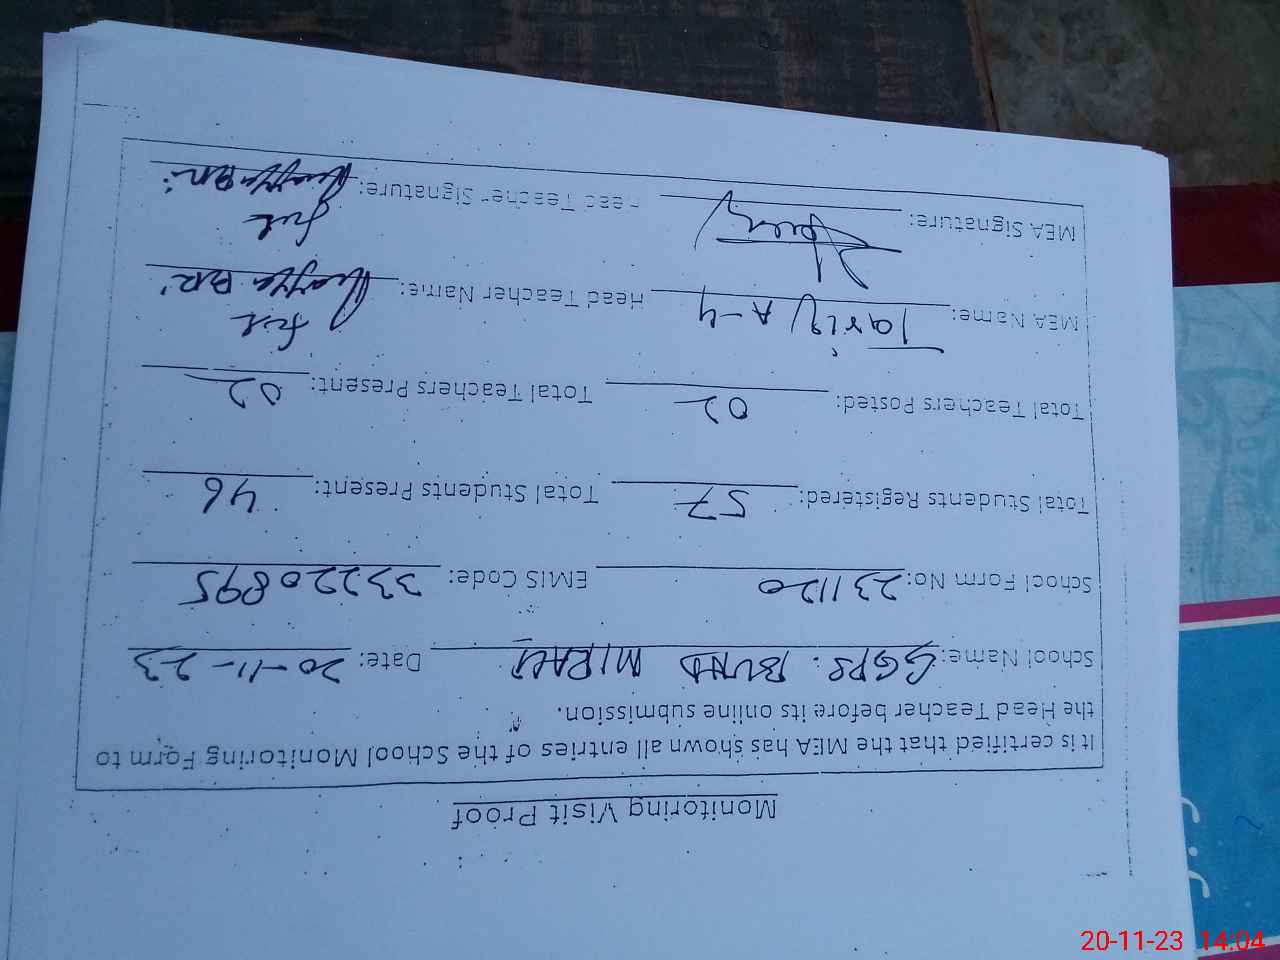 Monitoring Visit Proof
It is certified that the MEA has shown all entries of the School Monitoring Form to
the Head Teacher before its online submission.
School Name: GGPS. BUND MIRALI Date: 20-11-23
School Form No: 231120 EMIS Code: 33220895
Total Students Registered: 57 Total Students Present: 46
Total Teachers Posted: 02 Total Teachers Present: 02
MEA Name: Tariq A-4 Head Teacher Name:
MEA Signature: Head Teacher Signature:
20-11-23 14:04